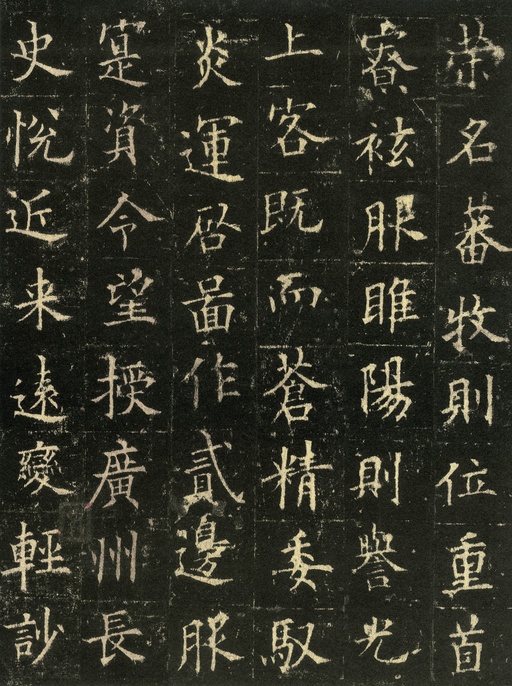 荣名蕃牧則位重首
寮袨服睢陽則譽光
上客既而蒼精委馭
炎運启啚作貳邊服
寔資令望授廣州長
史悅近来遠變輕訬